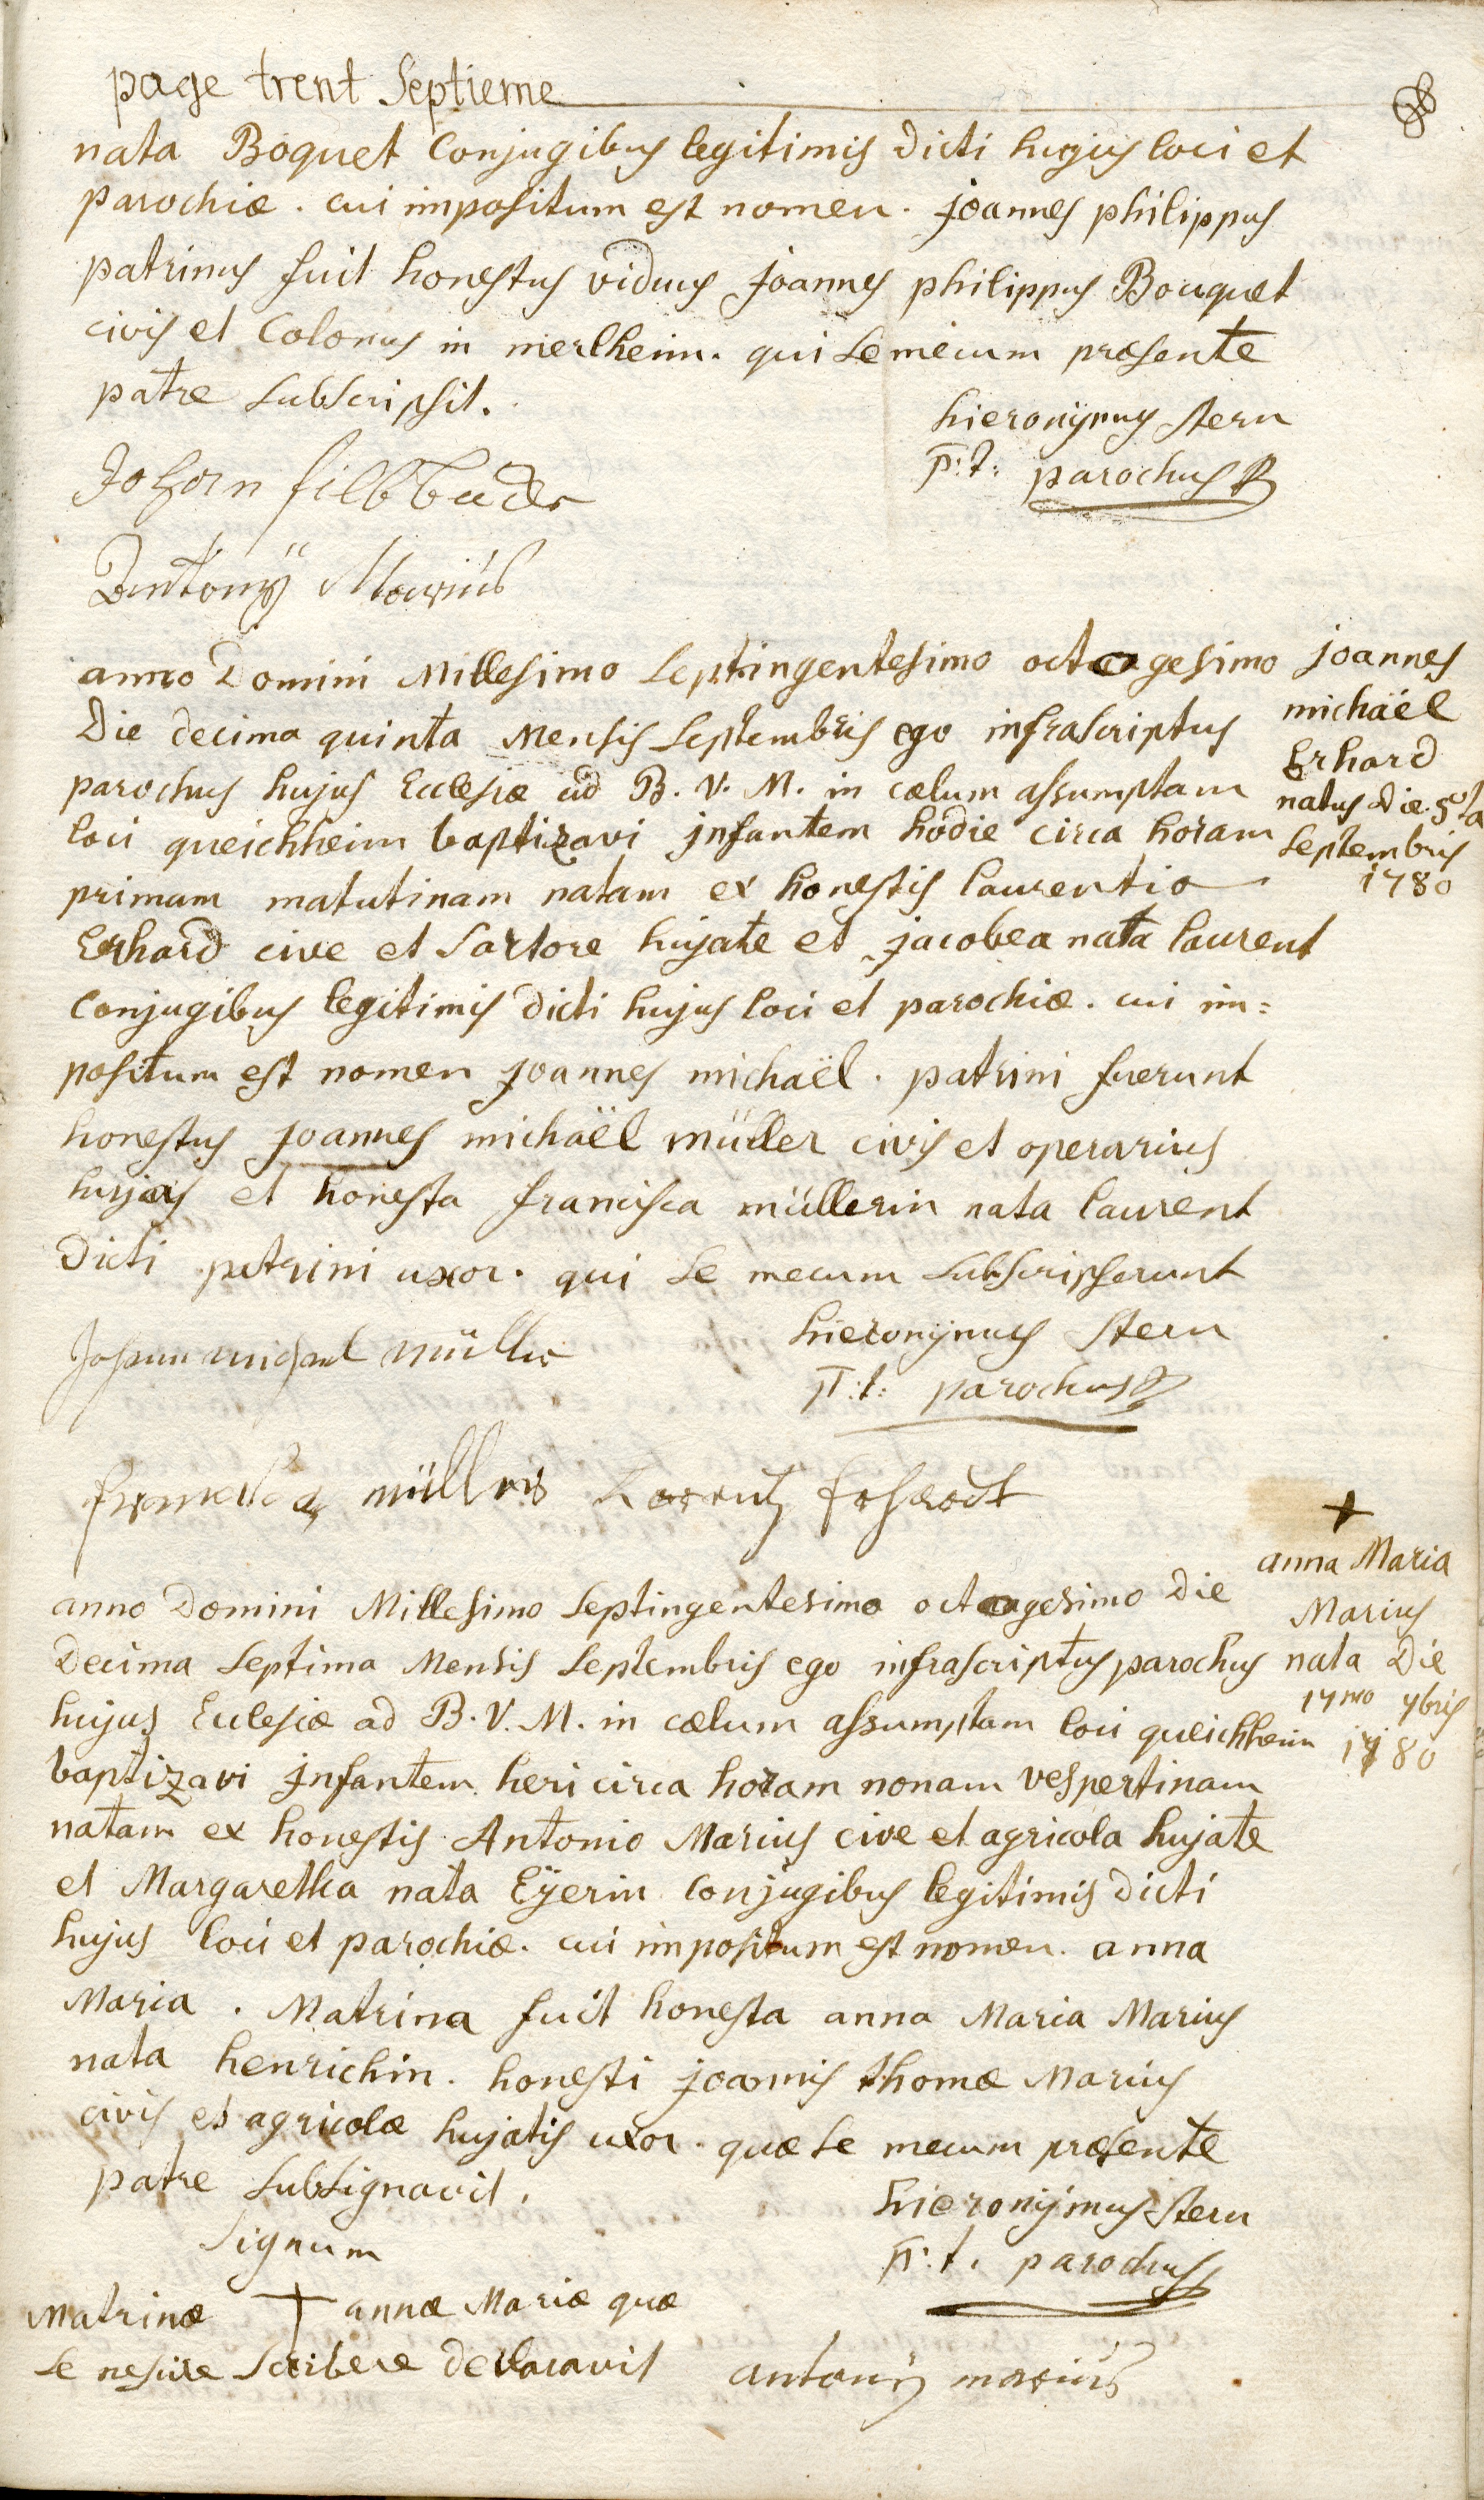 page trent Septieme
nata Boquet Conjugibus legitimis dicti hujus loci et
parochiæ. cui impositum est nomen. joannes philippus
patrinus fuit honestus viduus joannes philippus Bouquet
civis et Colonus in merlheim. qui se mecum præsente
patre subscripsit.
hieronÿmus stern
p:t: parochus
Johan
Antonÿ Marius
anno Domini Millesimo Septingentesimo octogesimo
Die decima quinta Mensis Septembris ego infrascriptus
parochus hujus Ecclesiæ ad B. V. M. in cælum assumptam
loci queichheim baptizavi jnfantem hodie circa horam
primam matutinam natam ex honestis laurentio
Erhard cive et Sartore hujate et jacobea nata laurent
Conjugibus legitimis dicti hujus loci et parochiæ. cui im=
positum est nomen joannes michaël. patrini fuerunt
honestus joannes michaël müller civis et operarius
hujas et honesta francisca müllerin nata laurent
Dicti patrini uxor. qui se mecum subscripserunt
joannes
michäel
Erhard
natus die
Septembris
1780
hieronÿmus stern
p:t: parochus
Johann michael müller
müllerin
anno Domini Millesimo Septingentesimo octogesimo Die
Decima Septima Mensis Septembris ego infrascriptus parochus
hujus Ecclesiæ ad B. V. M. in cælum assumptam loci queichheim
baptizavi jnfantem heri circa horam nonam vespertinam
natam ex honestis Antonio Marius cive et agricola hujate
et Margaretha nata Eÿerin Conjugibus legitimis dicti
hujus loci et parochiæ. cui impositum est nomen. anna
Maria. Matrina fuit honesta anna Maria Marius
nata henrichin. honesti joannis thomæ Marius
civis et agricolæ hujatis uxor. quæ se mecum præsente
patre subsignavit.
+
anna Maria
Marius
nata Die
17mo 7bris
1780
hieronÿmus stern
p:t. parochus
Signum
Matrinæ + annæ Mariæ quæ
se nescire Scribere declaravit
antonÿ marius